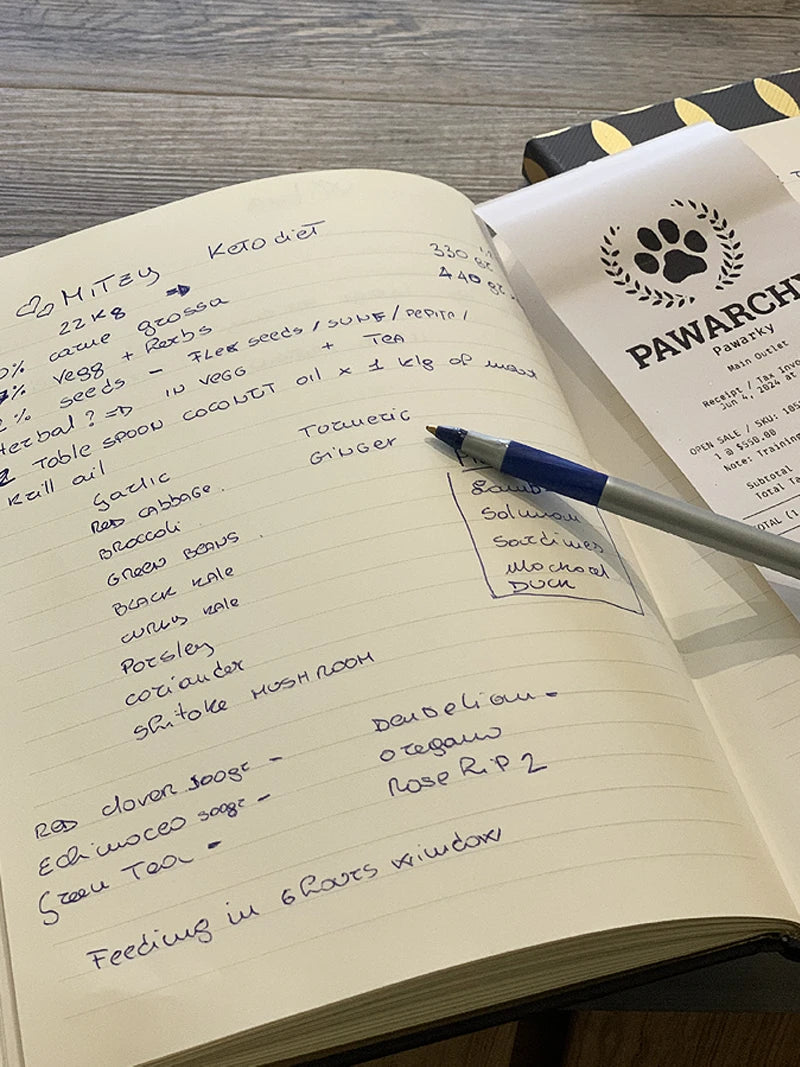 MITZY Keto diet
22 KG ⇒ 330 gr
440 gr.
0% carne grossa
% Vegg + Herbs
% seeds - Flex seeds / SUNF / PEPITA /
Herbal? ⇒ IN VEGG + TEA
2 TABLE SPOON COCONUT oil x 1 klg of meat
Krill oil
Garlic Turmeric
RED CABBAGE. GINGER
BROCCOLI
GREEN BEANS.
BLACK KALE
CURLY KALE
Parsley
coriander
Shitake MUSHROOM
Lamb
Salmon
Sardines
Mackarel
DUCK
RED clover 300gr - Dendelion -
Echinacea 300gr - oregano
Green Tea - Rose Rip 2
Feeding in 6 hours window
PAWARCHY
Pawarky
Main Outlet
Receipt / Tax Invo
Jun 4, 2024 at
OPEN SALE / SKU: 105
1 @ $550.00
Note: Training
Subtotal
Total Ta
TOTAL (1